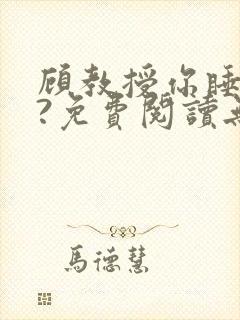 顧教授你睡
?免費閱讀
馬德慧